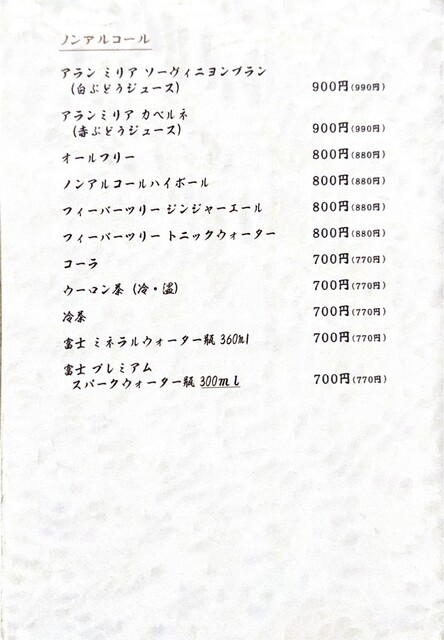 ノンアルコール
アラン ミリア ソーヴィニヨンブラン
(白ぶどうジュース) 900円(990円)
アランミリア カベルネ
(赤ぶどうジュース) 900円(990円)
オールフリー 800円(880円)
ノンアルコールハイボール 800円(880円)
フィーバーツリー ジンジャーエール 800円(880円)
フィーバーツリー トニックウォーター 800円(880円)
コーラ 700円(770円)
ウーロン茶 (冷・温) 700円(770円)
冷茶 700円(770円)
富士 ミネラルウォーター瓶 360ml 700円(770円)
富士 プレミアム
スパークウォーター瓶 300ml 700円(770円)